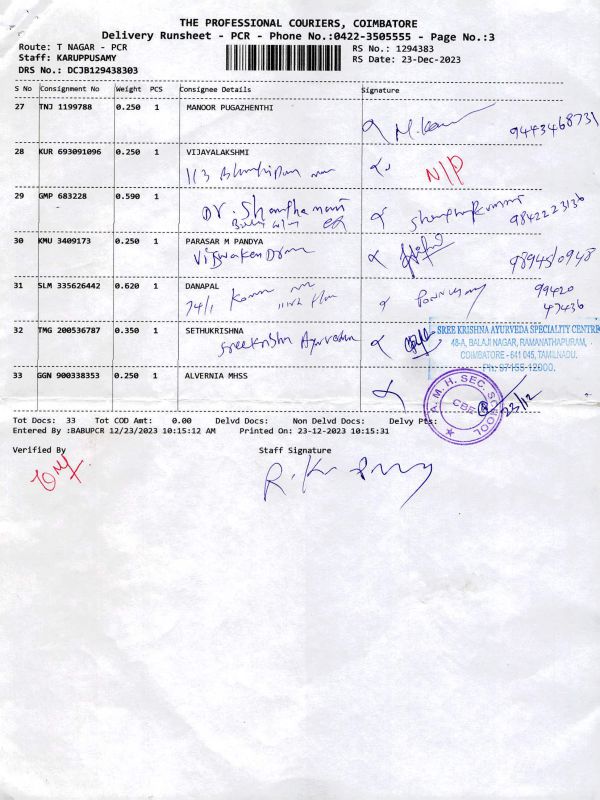 THE PROFESSIONAL COURIERS, COIMBATORE
Delivery Runsheet - PCR - Phone No.:0422-3505555 - Page No.:3
Route: T NAGAR - PCR RS No.: 1294383
Staff: KARUPPUSAMY RS Date: 23-Dec-2023
DRS No.: DCJB129438303
S No Consignment No Weight PCS Consignee Details Signature
27 TNJ 1199788 0.250 1 MANOOR PUGAZHENTHI
9443468731
28 KUR 693091096 0.250 1 VIJAYALAKSHMI
113 N/P
29 GMP 683228 0.590 1
Dr. Shanthamani
9842223136
30 KMU 3409173 0.250 1 PARASAR M PANDYA
98945 0948
31 SLM 335626442 0.620 1 DANAPAL
74/1 Ponnusamy 99420
47436
32 TMG 200536787 0.350 1 SETHUKRISHNA
Sreekrishna Ayurveda
SREE KRISHNA AYURVEDA SPECIALITY CENTRE
48-A, BALAJI NAGAR, RAMANATHAPURAM,
COIMBATORE - 641 045, TAMILNADU.
Ph: 97155 12000.
33 GGN 900338353 0.250 1 ALVERNIA MHSS
A. M. H. SEC. SCHOOL
CBE
23/12
Tot Docs: 33 Tot COD Amt: 0.00 Delvd Docs: Non Delvd Docs: Delvy Pts:
Entered By :BABUPCR 12/23/2023 10:15:12 AM Printed On: 23-12-2023 10:15:31
Verified By Staff Signature